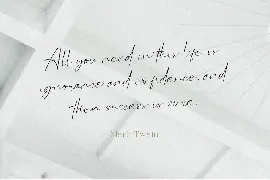 All you need in this life is
ignorance and confidence, and
then success is sure.
Mark Twain